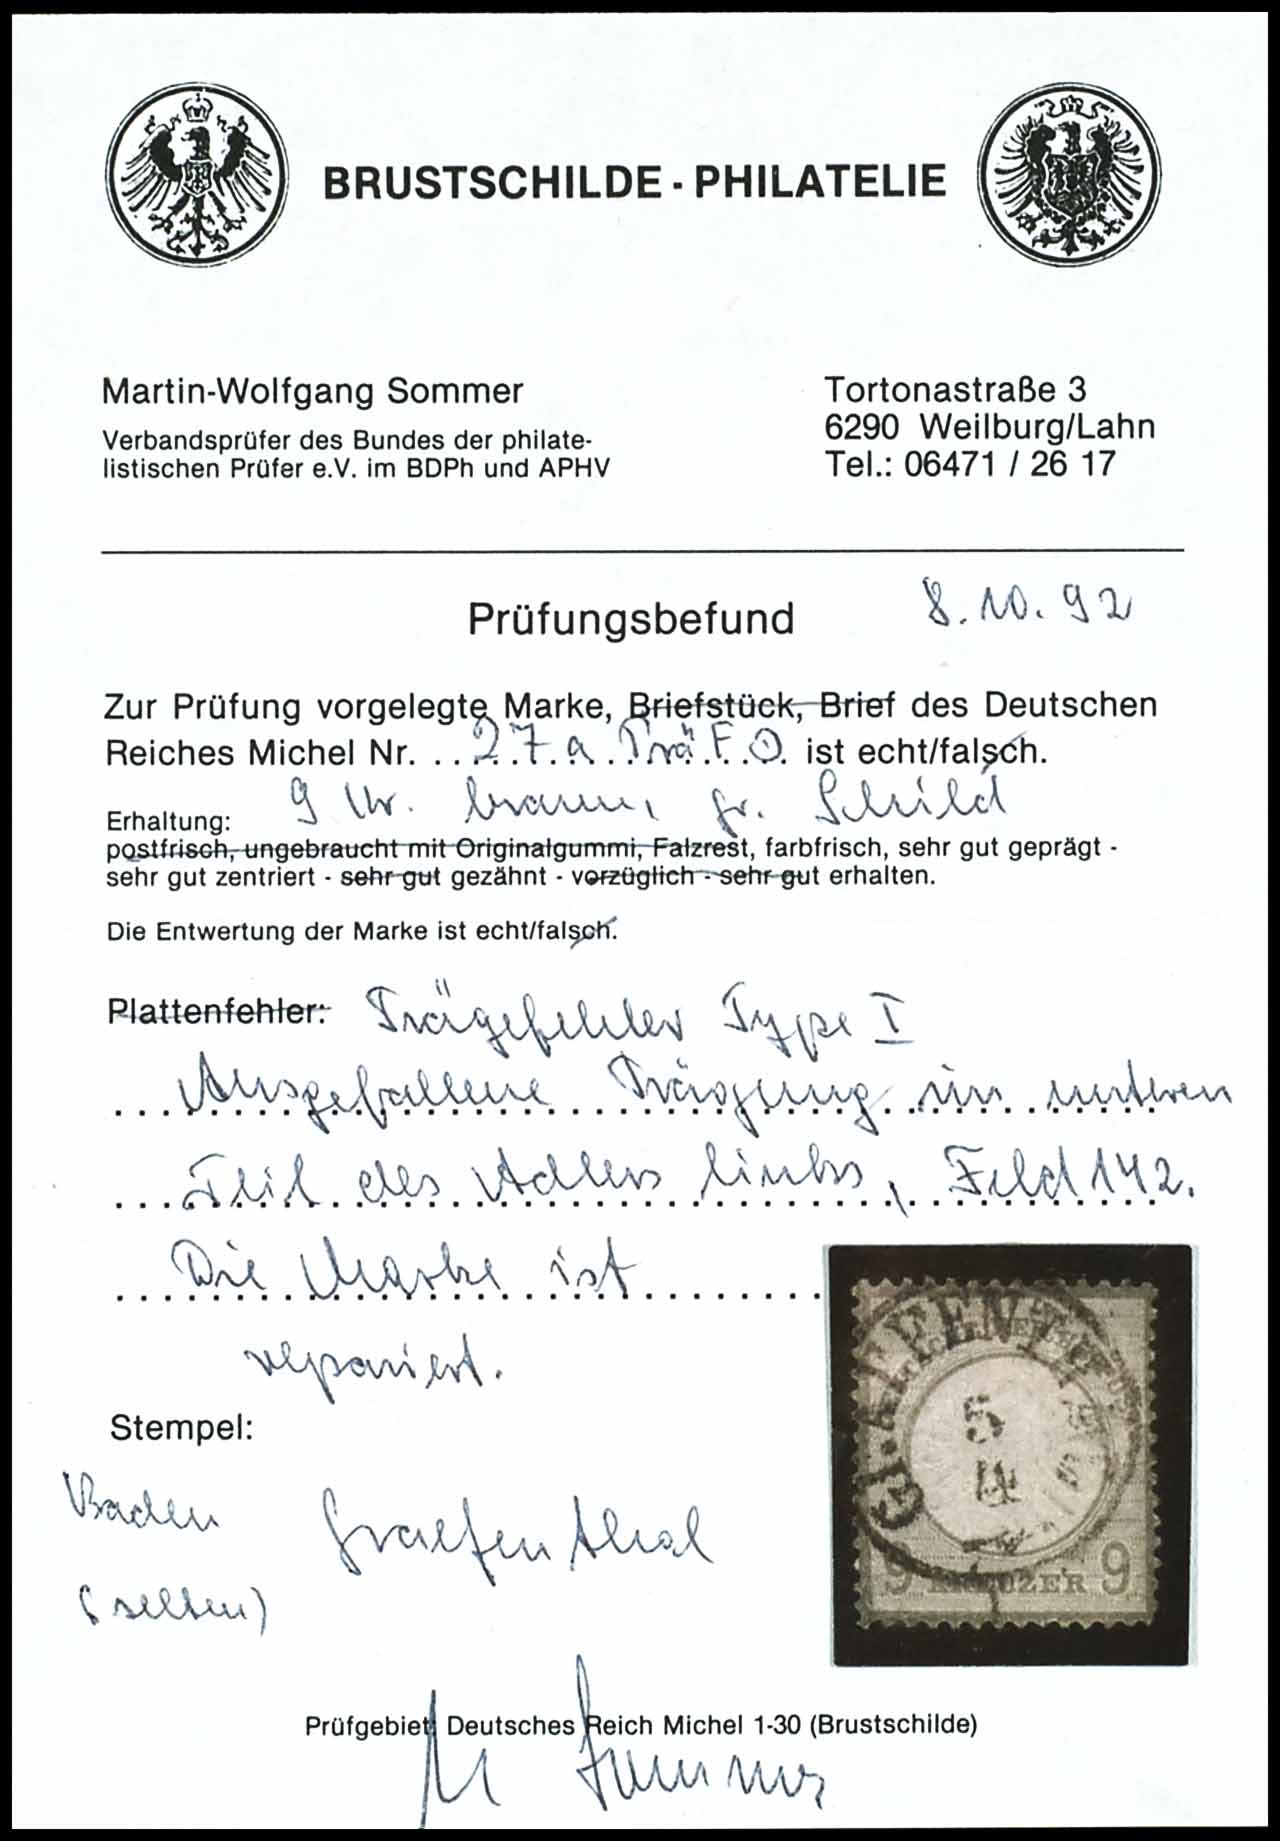 BRUSTSCHILDE - PHILATELIE
Martin-Wolfgang Sommer
Verbandsprüfer des Bundes der philate-
listischen Prüfer e.V. im BDPh und APHV
Tortonastraße 3
6290 Weilburg/Lahn
Tel.: 06471 / 26 17
Prüfungsbefund 8.10.92
Zur Prüfung vorgelegte Marke, Briefstück, Brief des Deutschen
Reiches Michel Nr. 27a PräF ⊙ ist echt/falsch.
9 Kr. braun, gr. Schild
Erhaltung:
postfrisch, ungebraucht mit Originalgummi, Falzrest, farbfrisch, sehr gut geprägt -
sehr gut zentriert - sehr gut gezähnt - vorzüglich - sehr gut erhalten.
Die Entwertung der Marke ist echt/falsch.
Plattenfehler: Prägefehler Type I
Ausgefallene Prägung im unteren
Teil des Adlers links, Feld 142.
Die Marke ist
repariert.
Stempel:
Baden Graefenthal
(selten)
GRAEFENTH
5
4
9 KREUZER 9
Prüfgebiet: Deutsches Reich Michel 1-30 (Brustschilde)
M Sommer